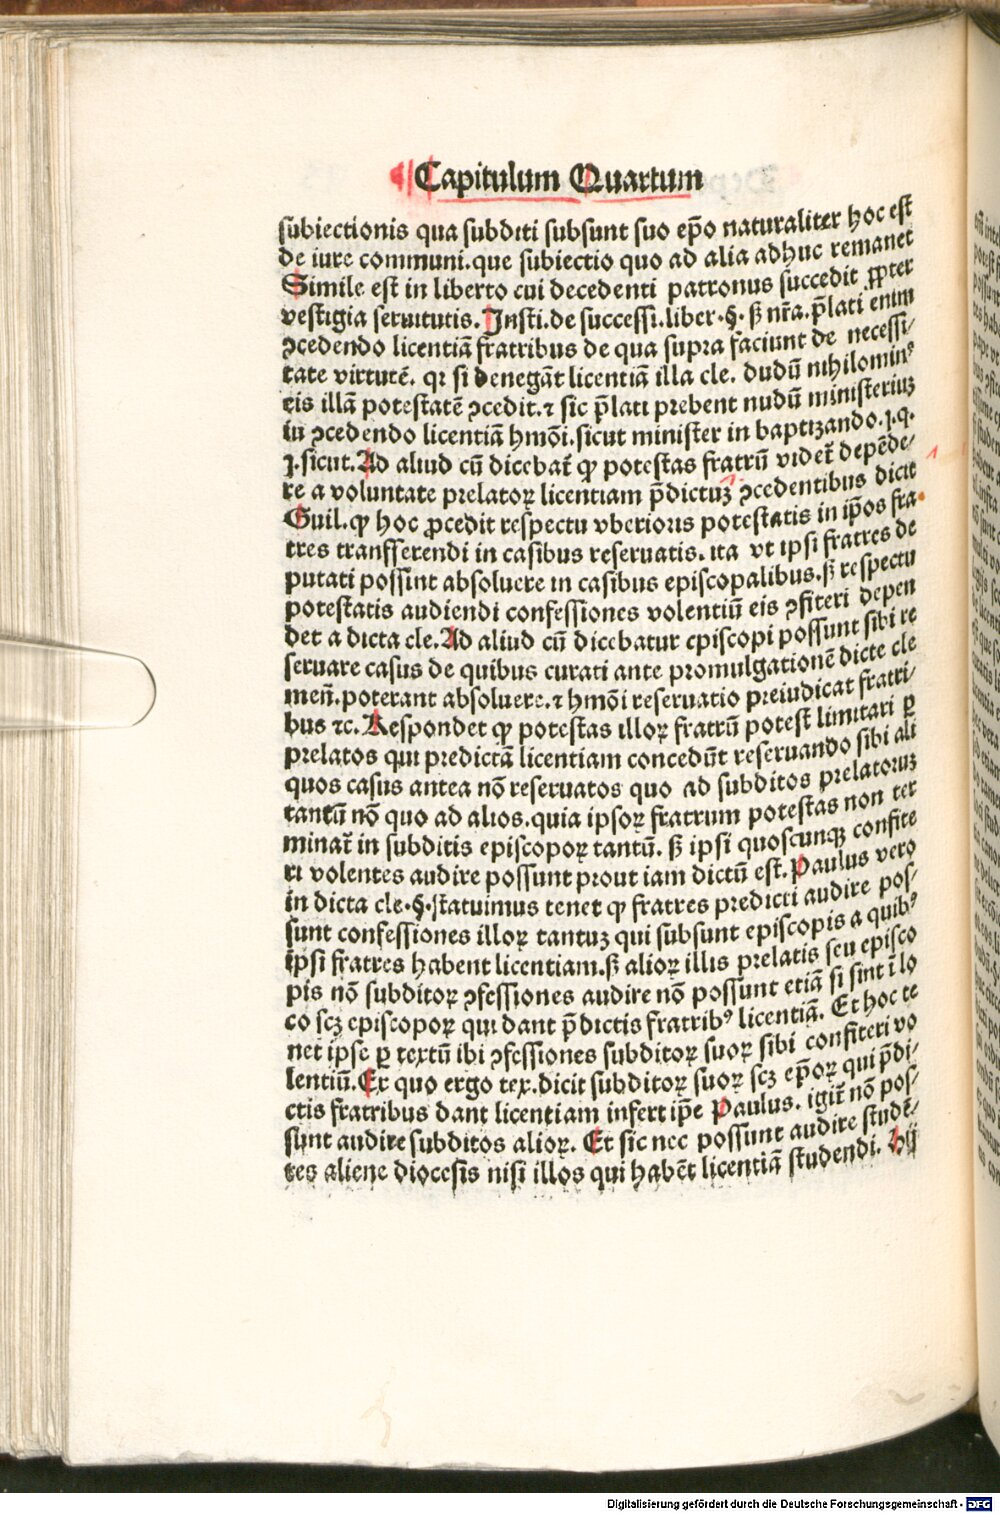 Capitulum Quartum
subiectionis qua subditi subsunt suo ep̄o naturaliter hoc est
de iure communi.que subiectio quo ad alia adhuc remanet
Simile est in liberto cui decedenti patronus succedit ꝓpter
vestigia seruitutis. Insti.de successi.liber.§. sꝫ nr̄a.p̄lati enim
ꝯcedendo licentiā fratribus de qua supra faciunt de necessi/
tate virtutē. qꝛ si denegāt licentiā illa cle. dudū nihilominꝰ
eis illā potestatē ꝯcedit.⁊ sic p̄lati prebent nudū ministeriuꝫ
in ꝯcedendo licentiā hmōi.sicut minister in baptizando.j.q.
j.sicut.Ad aliud cū dicebat̄ ꝙ potestas fratrū videt̄ depēde/
re a voluntate prelatoꝝ licentiam p̄dictuꝫ ꝯcedentibus dicit
Guil.ꝙ hoc ꝓcedit respectu vberioris potestatis in ip̄os fra
tres transfferendi in casibus reseruatis. ita vt ipsi fratres de
putati possint absoluere in casibus episcopalibus.sꝫ respectu
potestatis audiendi confessiones volentiū eis ꝯfiteri depen
det a dicta cle.Ad aliud cū dicebatur episcopi possunt sibi re
seruare casus de quibus curati ante promulgationē dicte cle
men̄.poterant absoluere.⁊ hmōi reseruatio preiudicat fratri/
bus ⁊c.Respondet ꝙ potestas illoꝝ fratrū potest limitari ꝑ
prelatos qui predictā licentiam concedūt reseruando sibi ali
quos casus antea nō reseruatos quo ad subditos prelatoruꝫ
tantū nō quo ad alios.quia ipsoꝝ fratrum potestas non ter
minat̄ in subditis episcopoꝝ tantū. sꝫ ipsi quoscunqꝫ confite
ri volentes audire possunt prout iam dictū est.Paulus vero
in dicta cle.§.statuimus tenet ꝙ fratres predicti audire pos/
sunt confessiones illoꝝ tantuꝫ qui subsunt episcopis a quibꝰ
ipsi fratres habent licentiam.sꝫ alioꝝ illis prelatis seu episco
pis nō subditoꝝ ꝯfessiones audire nō possunt etiā si sint ī lo
co scꝫ episcopoꝝ qui dant p̄dictis fratribꝰ licentiā. Et hoc te
net ipse ꝑ textū ibi ꝯfessiones subditoꝝ suoꝝ sibi confiteri vo
lentiū.Ex quo ergo tex.dicit subditoꝝ suoꝝ scꝫ ep̄oꝝ qui p̄di/
ctis fratribus dant licentiam infert ip̄e Paulus. igit̄ nō pos/
sunt audire subditos alioꝝ. Et sic nec possunt audire studē/
tes aliene diocesis nisi illos qui habēt licentiā studendi. Hij
Digitalisierung gefördert durch die Deutsche Forschungsgemeinschaft - DFG